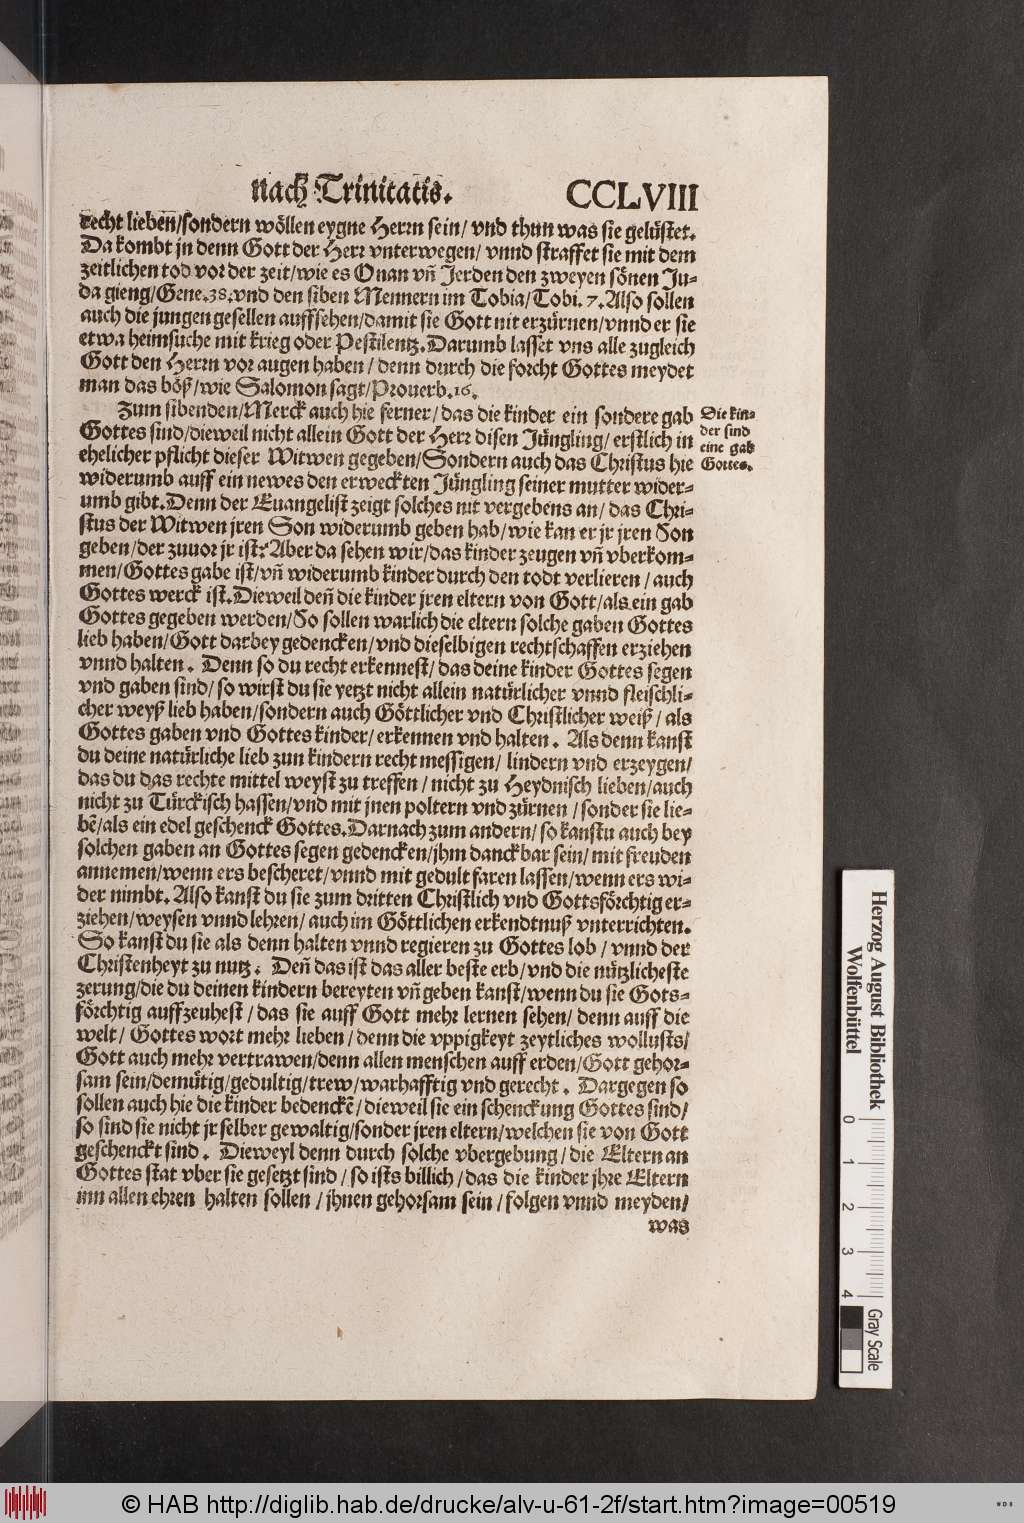 nach Trinitatis. CCLVIII
recht liebenn/sondern wöllen eygne Herrn sein/ vnd thun was sie gelüstet.
Da kombt jn denn Gott der Herr vnterwegen/ vnnd straffet sie mit dem
zeitlichen tod vor der zeit/wie es Onan vñ Jerden den zweyen sönen Ju-
da gieng/Gene.38.vnd den siben Mennern im Tobia/Tobi.7.Also sollen
auch die jungen gesellen auffsehen/damit sie Gott nit erzürnen/vnnd er sie
etwa heimsuche mit krieg oder Pestilentz.Darumb lasset vns alle zugleich
Gott den Herrn vor augen haben/ denn durch die forcht Gottes meydet
man das böß/wie Salomon sagt/Prouerb.16.
Zum sibenden/Merck auch hie ferner/das die kinder ein sondere gab
Gottes sind/dieweil nicht allein Gott der Herr disen Jüngling/ erstlich in
ehelicher pflicht dieser Witwen gegeben/Sondern auch das Christus hie
widerumb auff ein newes den erweckten Jüngling seiner mutter wider-
umb gibt.Denn der Euangelist zeigt solches nit vergebens an/ das Chri-
stus der Witwen jren Son widerumb geben hab/wie kan er jr jren Son
geben/der zuuor jr ist? Aber da sehen wir/das kinder zeugen vñ vberkom-
men/Gottes gabe ist/vñ widerumb kinder durch den todt verlieren/auch
Gottes werck ist.Dieweil deñ die kinder jren eltern von Gott/als ein gab
Gottes gegeben werden/So sollen warlich die eltern solche gaben Gottes
lieb haben/Gott darbey gedencken/vnd dieselbigen rechtschaffen erziehen
vnnd halten. Denn so du recht erkennest/das deine kinder Gottes segen
vnd gaben sind/so wirst du sie yetzt nicht allein natürlicher vnnd fleischli-
cher weyß lieb haben/sondern auch Göttlicher vnd Christlicher weiß/als
Gottes gaben vnd Gottes kinder/erkennen vnd halten. Als denn kanst
du deine natürliche lieb zun kindern recht messigen/ lindern vnd erzeygen/
das du das rechte mittel weyst zu treffen/nicht zu Heydnisch lieben/auch
nicht zu Türckisch hassen/vnd mit jnen poltern vnd zürnen/sonder sie lie-
bē/als ein edel geschenck Gottes.Darnach zum andern/so kanstu auch bey
solchen gaben an Gottes segen gedencken/jhm danckbar sein/mit freuden
annemen/wenn ers bescheret/vnnd mit gedult faren lassen/wenn ers wi-
der nimbt.Also kanst du sie zum dritten Christlich vnd Gottsförchtig er-
ziehen/weysen vnnd lehren/auch im Göttlichen erkendtnuß vnterrichten.
So kanst du sie als denn halten vnnd regieren zu Gottes lob/vnnd der
Christenheyt zu nutz. Deñ das ist das aller beste erb/vnd die nützlicheste
zerung/die du deinen kindern bereyten vñ geben kanst/wenn du sie Gots-
förchtig auffzeuhest/das sie auff Gott mehr lernen sehen/denn auff die
welt/ Gottes wort mehr lieben/denn die vppigkeyt zeytliches wollusts/
Gott auch mehr vertrawen/denn allen menschen auff erden/Gott gehor-
sam sein/demütig/gedultig/trew/warhafftig vnd gerecht. Dargegen so
sollen auch hie die kinder bedenckē/dieweil sie ein schenckung Gottes sind/
so sind sie nicht jr selber gewaltig/sonder jren eltern/welchen sie von Gott
geschenckt sind. Dieweyl denn durch solche vbergebung/die Eltern an
Gottes stat vber sie gesetzt sind/so ists billich/das die kinder jhre Eltern
inn allen ehren halten sollen/jhnen gehorsam sein/folgen vnnd meyden/
was
Die kin-
der sind
eine gab
Gottes.
Herzog August Bibliothek
Wolfenbüttel
0 1 2 3 4
Gray Scale
© HAB http://diglib.hab.de/drucke/alv-u-61-2f/start.htm?image=00519